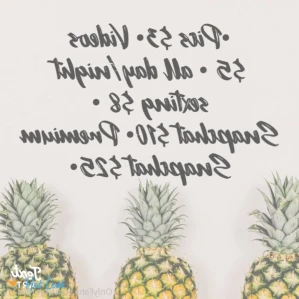 •Pics $3• Videos
$5 • all day/night
sexting $8 •
Snapchat $10• Premium
Snapchat $25•